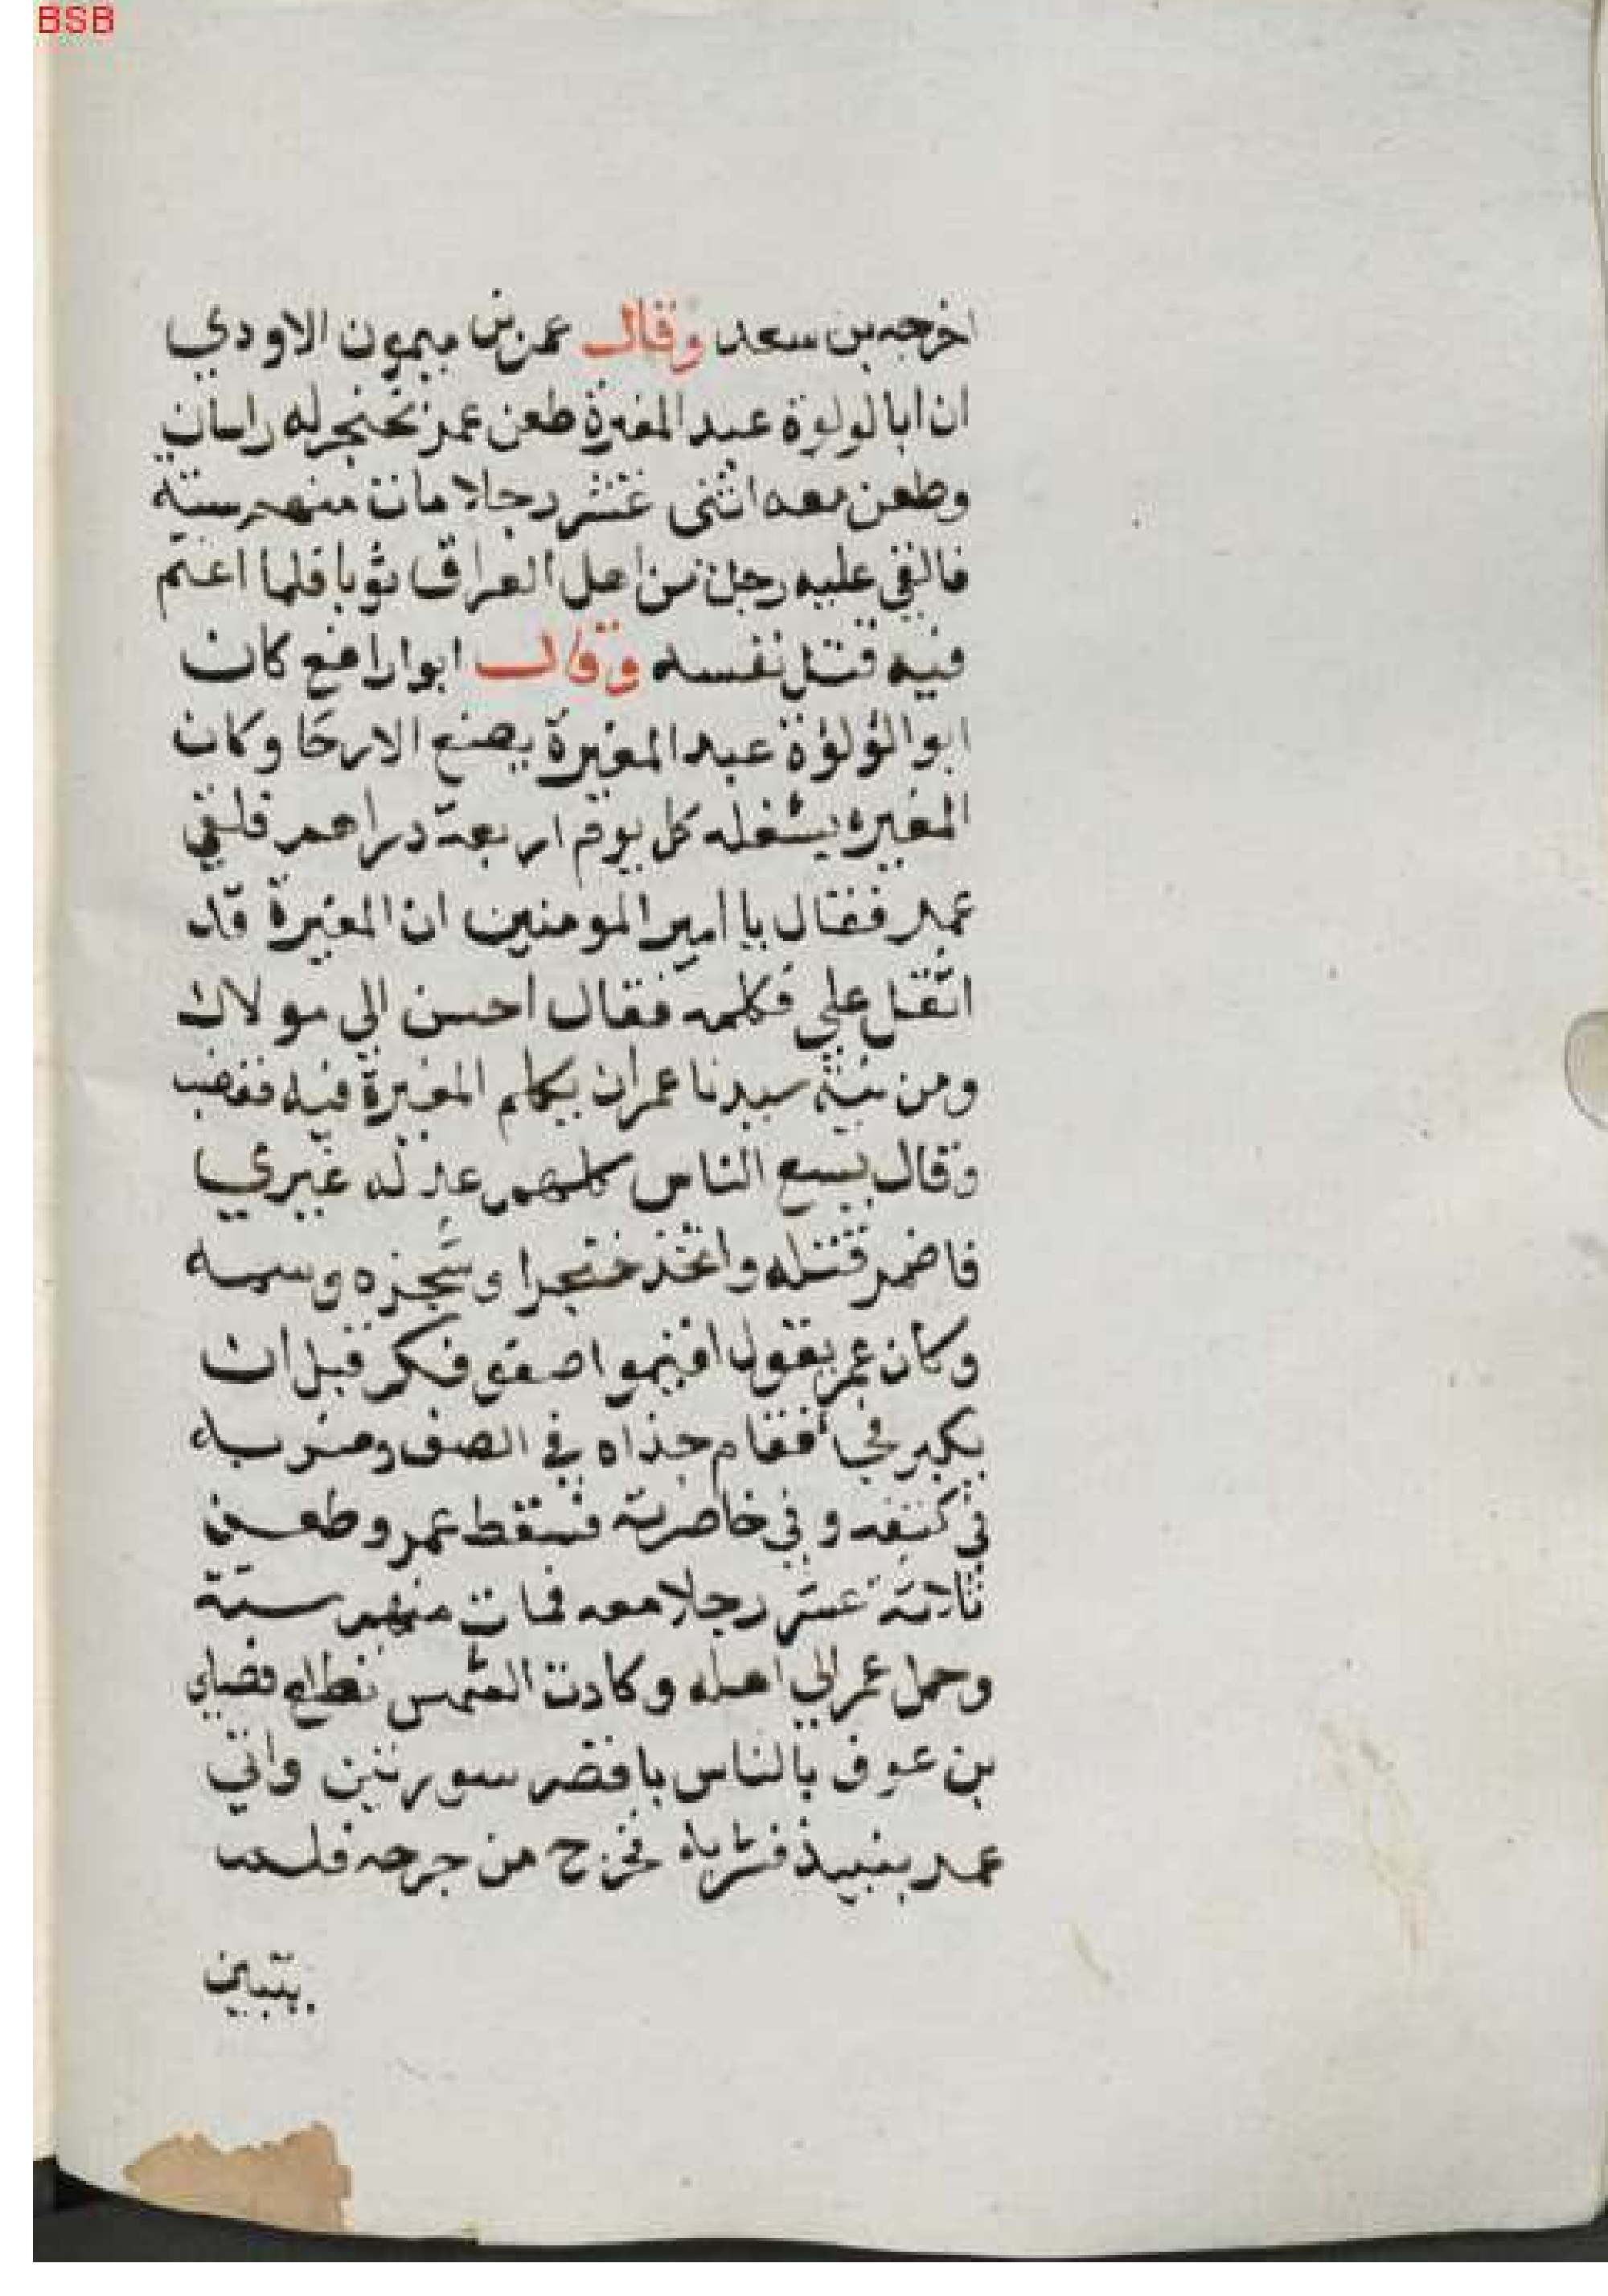 BSB
اخرجه بن سعد وقال عمر بن ميمون الاودي
ان ابا لولوة عبد المغيرة طعن عمر بخنجر له راسان
وطعن معه اثنى عشر رجلا مات منهم ستة
فالقي عليه رجل من اهل العراق ثوبا فلما اغتم
فيه قتل نفسه وقال ابوا رافع كان
ابوا لؤلؤة عبد المغيرة يصنع الارحا وكان
المغيره يشغله كل يوم اربعة دراهم فلقي
عمر فقال يا امير المومنين ان المغيرة قد
اثقل علي فكلمه فقال احسن الى مولاك
ومن نية سيدنا عمر ان يكلم المغيرة فيه فغضب
وقال يسع الناس كلهم عدله غيري
فاضمر قتله واتخذ خنجرا وسمه
وكان عمر يقول اقيموا صفوفكم قبل ان
يكبر فجا فقام حذاه في الصف وضربه
في كتفه وفي خاصرته فسقط عمر وطعن
ثلاثة عشر رجلا معه فمات منهم ستة
وحمل عمر الي اهله وكادت الشمس تطلع فصلي
بن عوف بالناس باقصر سورتين واتي
عمر بنبيذ فشربه فخرج من جرحه فلم
يتبين